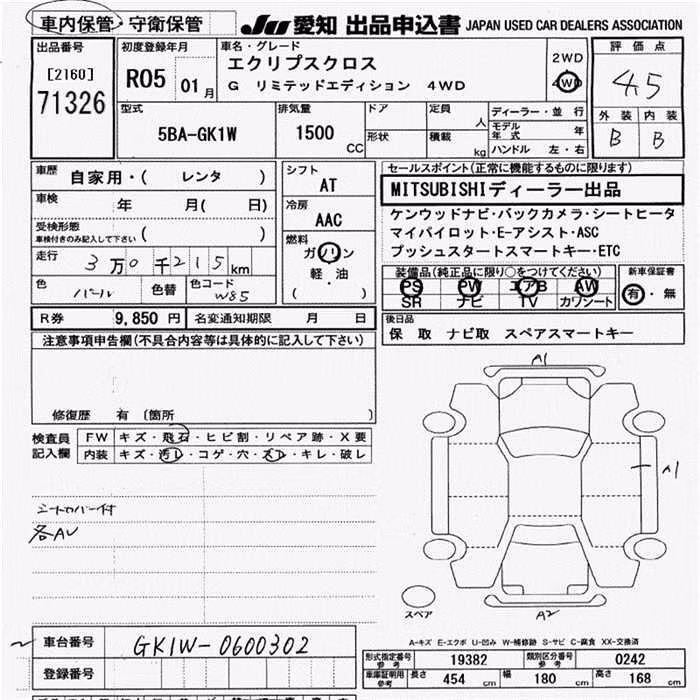 車内保管・守衛保管 JU 愛知 出品申込書 JAPAN USED CAR DEALERS ASSOCIATION
出品番号 [2160] 71326
初度登録年月 R05 01月
車名・グレード エクリプスクロス
G リミテッドエディション 4WD
2WD 4WD
評価点 4.5
外装 内装
B B
型式 5BA-GK1W
排気量 1500 CC
ドア 形状
定員 人 積載 kg
ディーラー・並行
モデル年式 年
ハンドル 左・右
車歴 自家用・( レンタ )
車検 年 月( 日)
受検形態 車検付きのみ記入して下さい ( )
走行 3万0千215km
色 パール 色替 色コード W85
シフト AT
冷房 AAC
燃料 ガソリン
軽・油
( )
セールスポイント(正常に機能するものに限ります)
MITSUBISHIディーラー出品
ケンウッドナビ・バックカメラ・シートヒータ
マイパイロット・E-アシスト・ASC
プッシュスタートスマートキー・ETC
装備品(純正品に限り○をつけてください)
PS PW エアB AW
SR ナビ TV カワシート
新車保証書
有・無
R券 9,850円 名変通知期限 月 日
後日品
保 取 ナビ取 スペアスマートキー
注意事項申告欄(不具合内容等は具体的に記入して下さい)
修復歴 有 〔箇所 〕
検査員記入欄
FW キズ・飛石・ヒビ割・リペア跡・X要
内装 キズ・汚レ・コゲ・穴・スレ・キレ・破レ
シートカバー付
各AU
A1
A1
A2
スペア
A-キズ E-エクボ U-凹み W-補修跡 S-サビ C-腐食 XX-交換済
車台番号 GK1W-0600302
登録番号
形式指定番号 参考 19382 類別区分番号 参考 0242
車庫証明用 参考 長さ 454 cm 幅 180 cm 高さ 168 cm